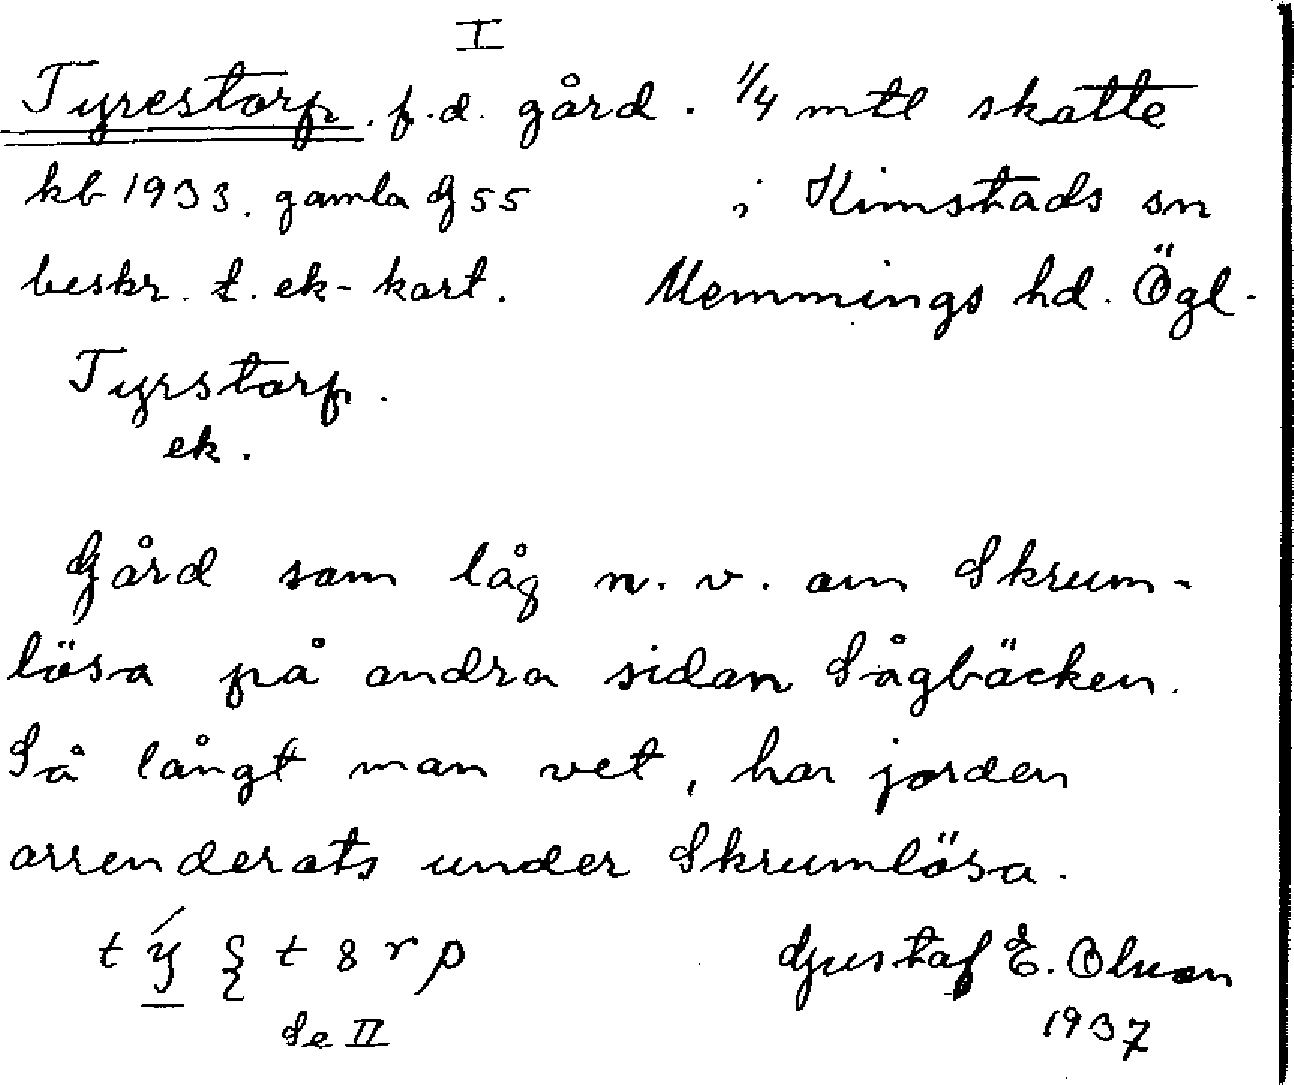 I
Tyrestorp. f.d. gård. 1/4 mtl skatte
kb 1933. gamla G 55 i Kimstads sn
beskr. t. ek-kart. Memmings hd. Ögl.
Tyrstorp.
ek.
Gård som låg n.v. om Skrum-
lösa på andra sidan Sågbäcken.
Så långt man vet, har jorden
arrenderats under Skrumlösa.
t ý t 8 r p Gustaf E. Olson
Se II 1937